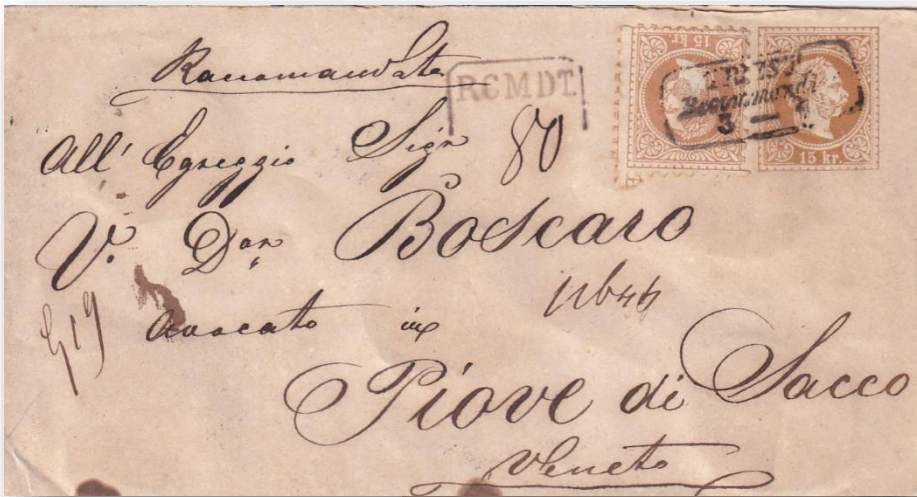 Raccomandata
RCMDT.
15 kr.
TRIEST
Recommandirt
3
15 kr.
All' Egreggio Sigr
80
V. Don Boscaro
Avvocato in
Piove di Sacco
Veneto